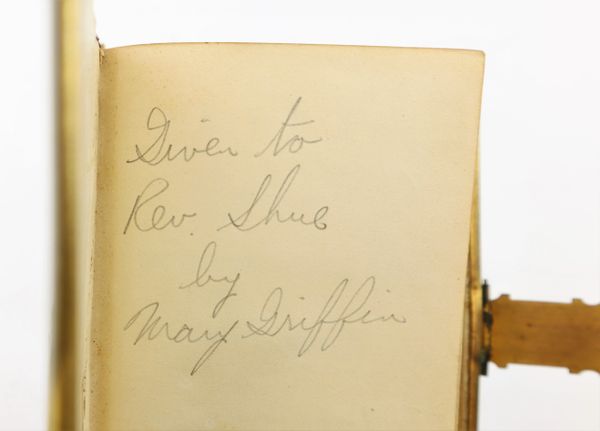 Given to
Rev. Shue
by
Mary Griffin